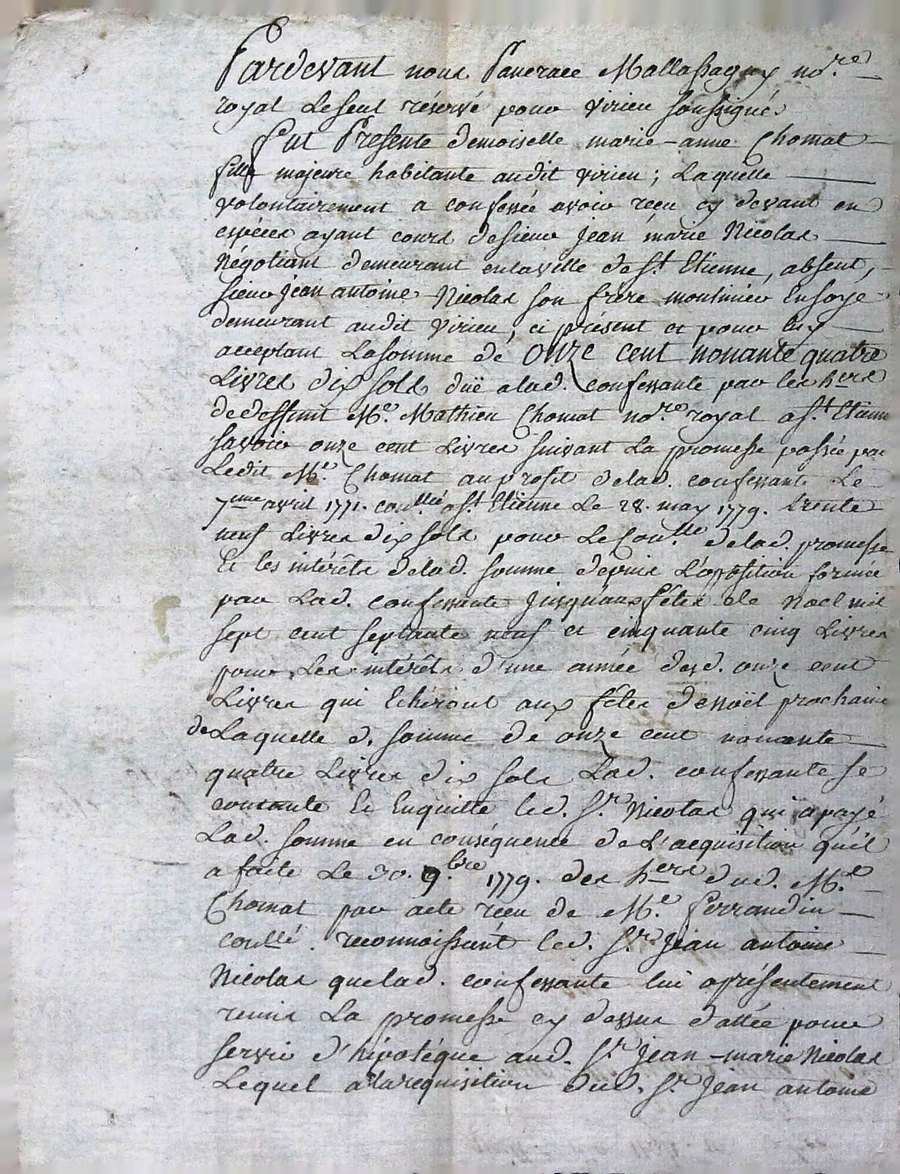 Pardevant nous Pancrace Mallassagny no.re
royal Le seul réservé pour virieu soussigné
fut Présente demoiselle marie-anne Chomat
fille majeure habitante audit virieu; Laquelle
volontairement a confessée avoir reçu cy devant en
especes ayant cours de sieur Jean marie Nicolas
Négotiant demeurant en la ville de St. Etienne, absent,
sieur Jean antoine Nicolas son frere moulinier En soye
demeurant audit virieu, ci présent et pour luy
acceptant La somme de onze cent nonante quatre
Livres dix sols duë a lad. confessante par les hers
de deffunt Me. Mathieu Chomat no.re royal a St. Etienne
savoir onze cent Livres suivant La promesse passée par
Ledit Me. Chomat au profit de lad. confessante Le
7me avril 1771. conllée a St. Etienne Le 28. may 1779. trente
neuf Livres dix sols pour Le con.lle de lad. promesse
Et les intérêts de lad. somme depuis L'oposition formée
par Lad. confessante jusquaux fêtes de Noel mil
sept cent septante neuf et cinquante cinq Livres
pour Les intérêts d'une année desd. onze cent
Livres qui Echeront aux fêtes de noël prochaine
de Laquelle d. somme de onze cent nonante
quatre Livres dix sols Lad. confessante se
contente Et Enquitte led. Sr. Nicolas qui a payé
Lad. somme en conséquence de L'acquisition qu'il
a faite Le 30. 9bre 1779. des hers dud. Me.
Chomat par acte reçu de Me. Ferrandin
conllé. reconnoissant led. Sr. Jean antoine
Nicolas que lad. confessante lui a présentement
remis La promesse cy dessus dattée pour
servir d'hipotéque aud. Sr. Jean-marie Nicolas
Lequel a la requisition dud. Sr. Jean antoine